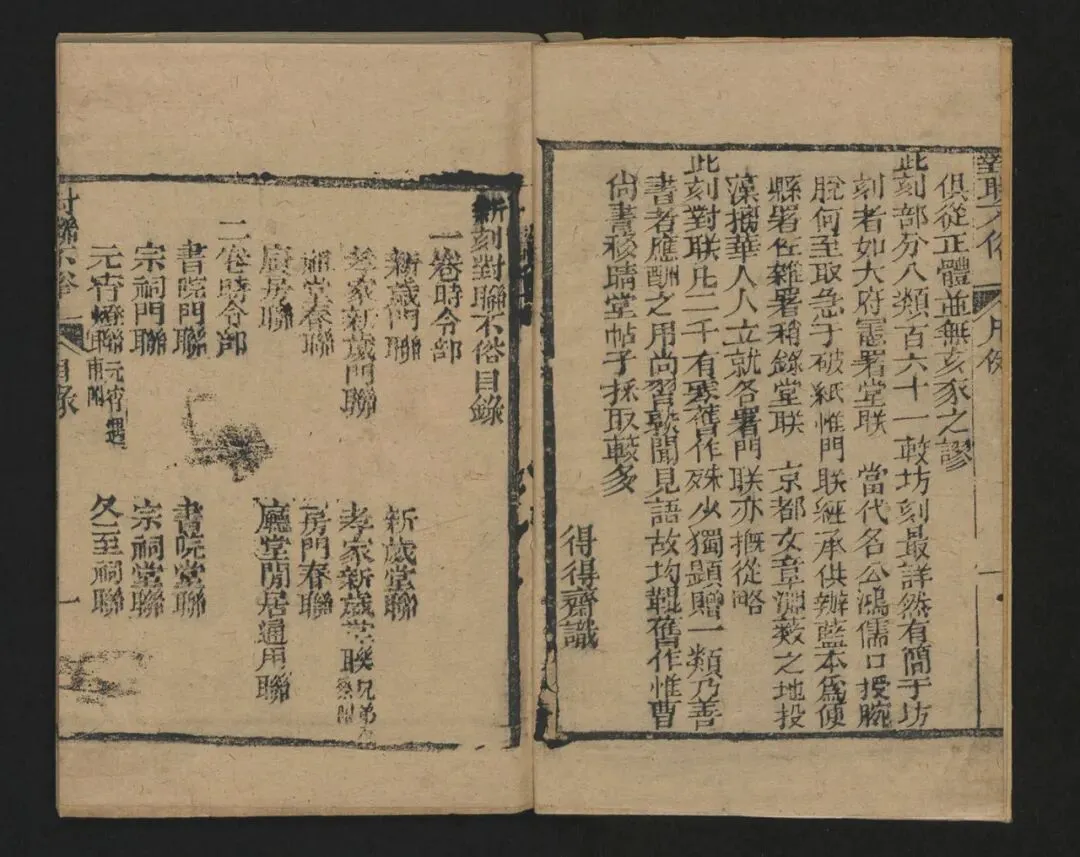 對聯不俗 凡例 一
俱從正體並無亥豕之謬
此刻部分八類百六十一較坊刻最詳然有簡于坊
刻者如大府憲署堂联 當代名公鴻儒口授腕
脫何至取急于破紙惟門联經承供辦藍本爲傾
縣署佐雜署稍錄堂联 京都文章淵薮之地投
藻摛華人人立就各署門联亦概從略
此刻對联凡二千有舊作殊少獨題贈一類乃善
書者應酬之用尚習聞見語故均輯舊作惟曹
尚書移晴堂帖子採取較多
得得齋識
新刻對聯不俗目錄
一卷時令部
新歲門聯 新歲堂聯
孝家新歲門聯 孝家新歲堂聯兄弟
春聯 房門春聯
廚房聯 廳堂閒居通用聯
二卷時令部
書院門聯 書院堂聯
宗祠門聯 宗祠堂聯
元宵燈聯元宵 冬至祠聯
對聯不俗 一 目錄 一